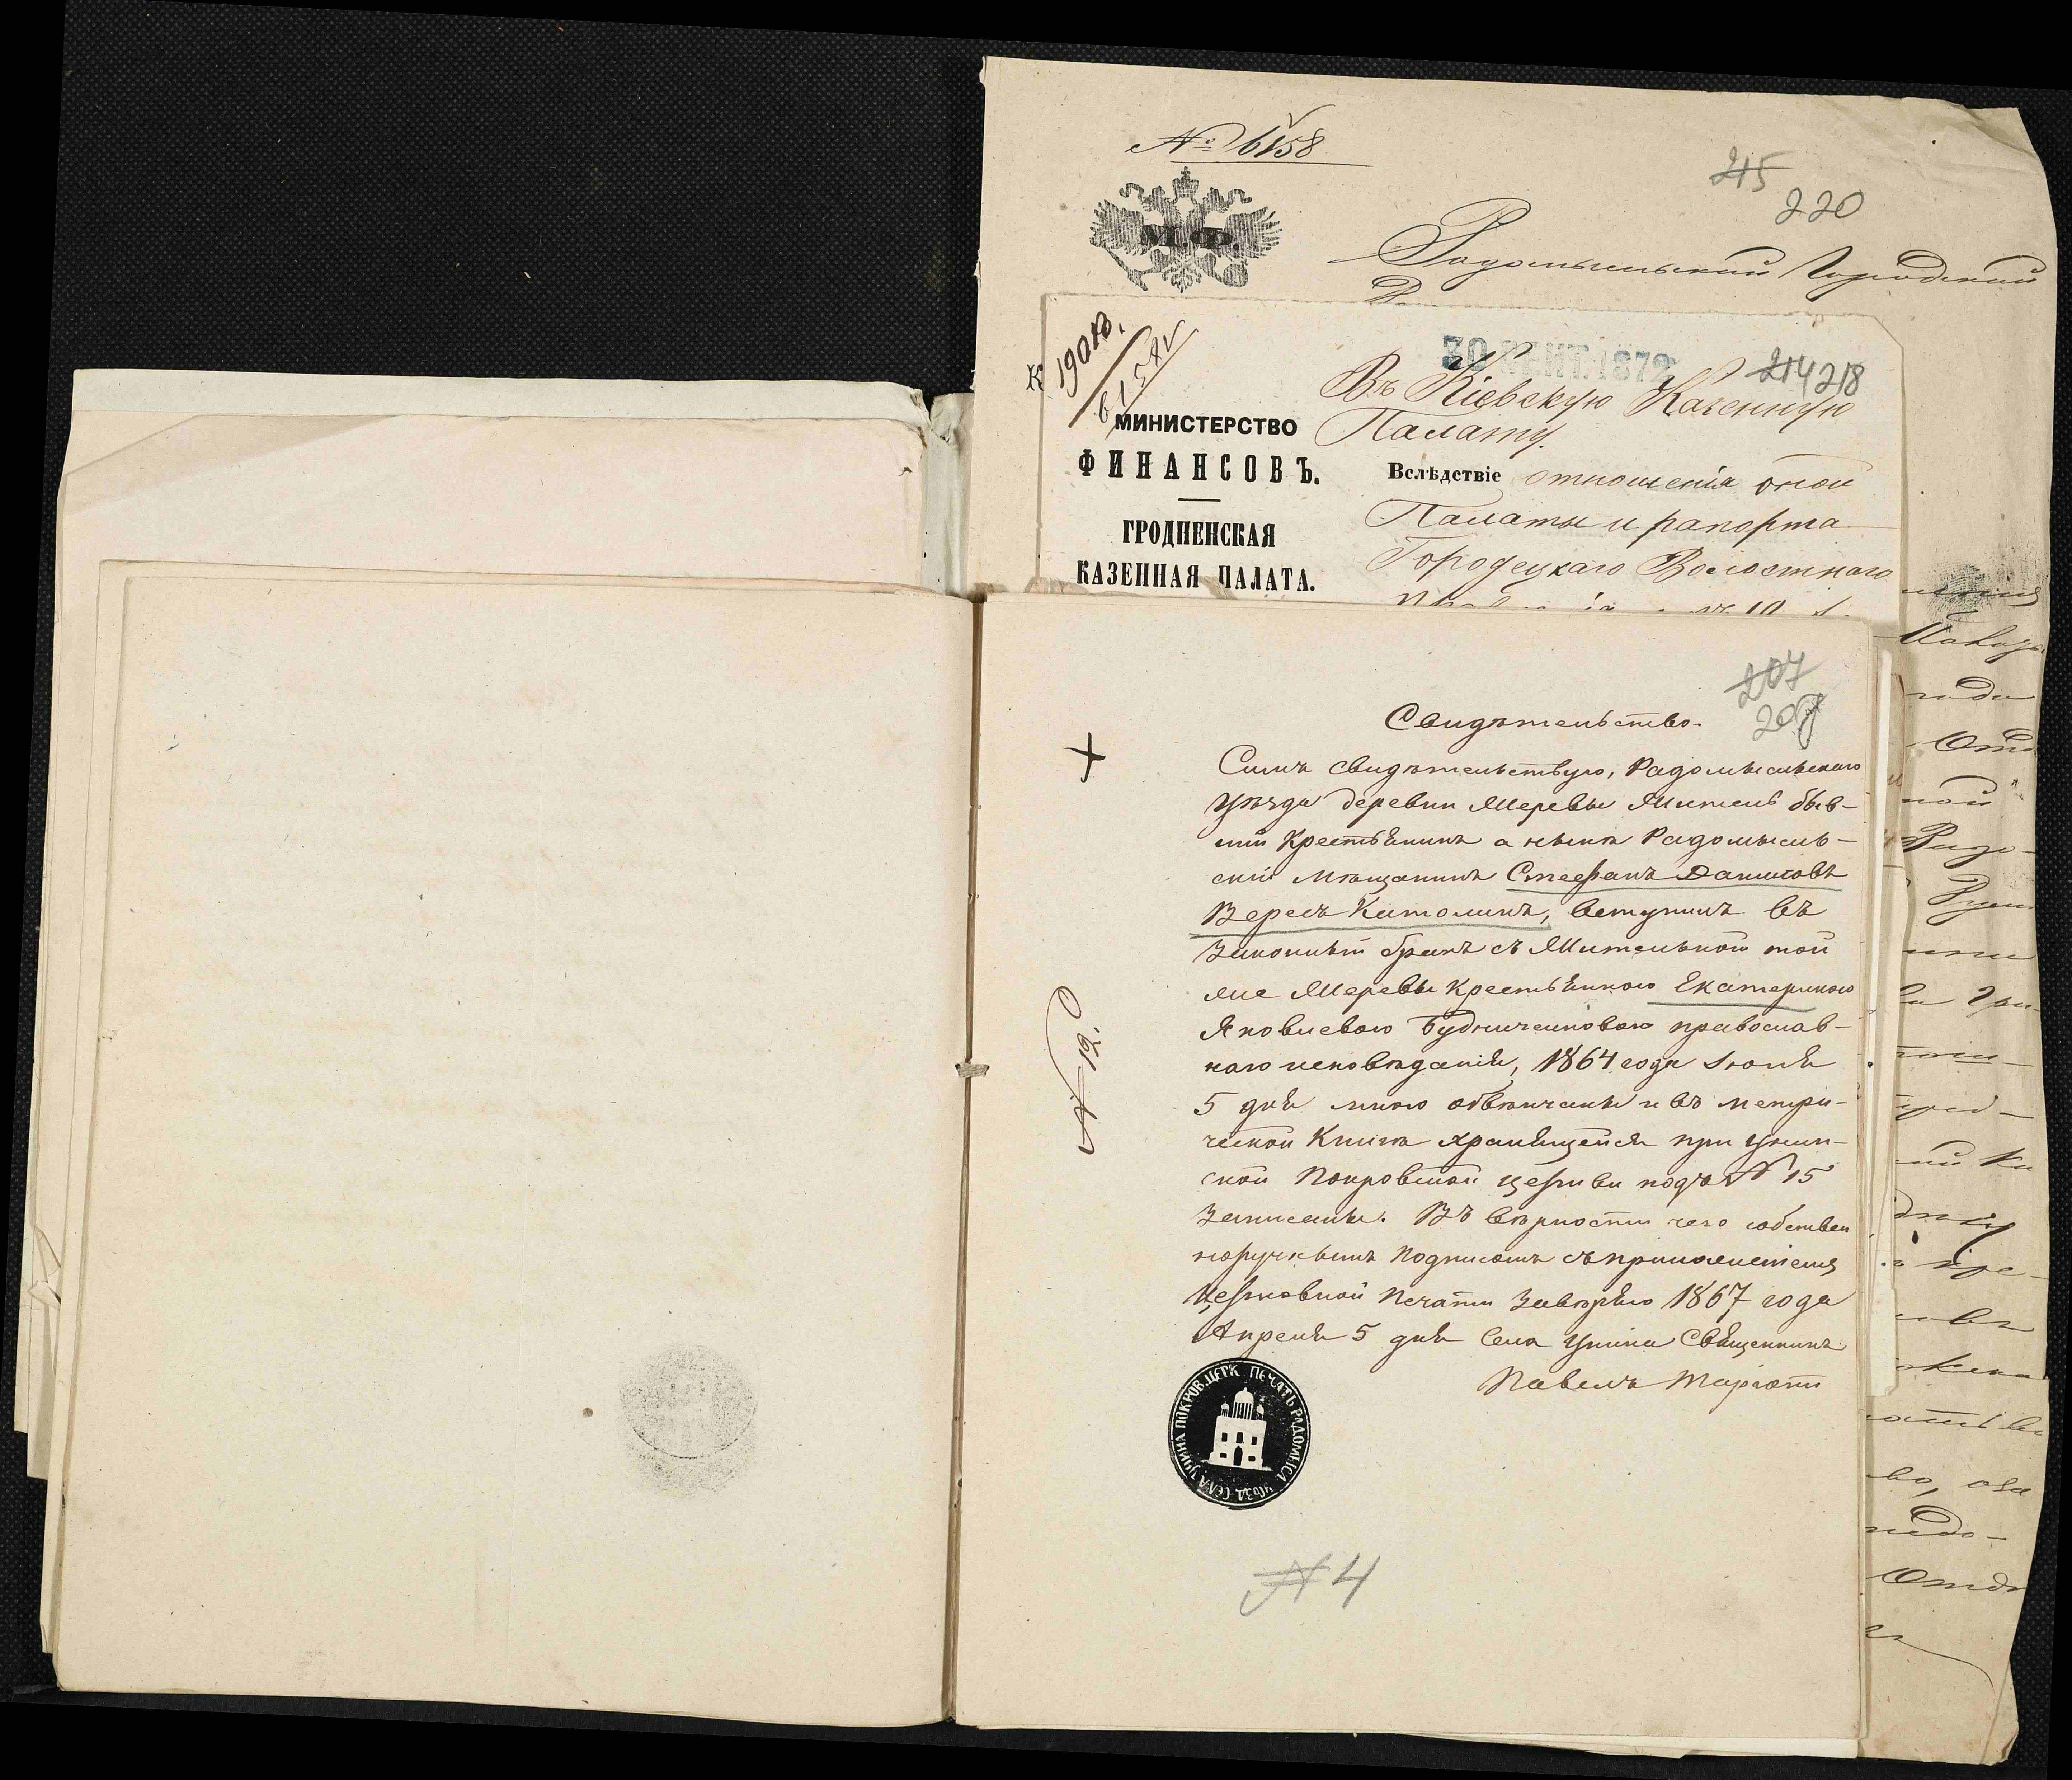 № 6158
М.Ф.
215
220
Радомысльский Городской
К 190 Ю.
6158
30 СЕНТ. 1872
214 218
Въ Кіевскую Казенную
Палату.
МИНИСТЕРСТВО
ФИНАНСОВЪ.
ГРОДНЕНСКАЯ
КАЗЕННАЯ ПАЛАТА.
Вслѣдствіе отношенія оной
Палаты и рапорта
Городецкаго Волостнаго
207
Свидѣтельство.
Симъ свидѣтельствую, Радомысльскаго
уѣзда деревни Меревы Житель быв-
шій Крестьянинъ а нынѣ Радомысль-
скій Мѣщанинъ Стефанъ Даниловъ
Вересъ Католикъ, вступилъ въ
Законный бракъ съ Жительною той
же Меревы Крестьянкою Екатериною
Яковлевою православ-
наго исповѣданія, 1864 года Іюля
5 дня мною обвѣнчаны и въ метри-
ческой Книгѣ хранящейся при Унин-
ской Покровской церкви подъ № 15
Записаны. Въ вѣрности чего собствен
норучнымъ Подписомъ съ приложеніемъ
Церковной Печати Завѣряю 1867 года
Апреля 5 дня Села Унина Священникъ
Павелъ
№ 12.
ПЕЧАТЬ РАДОМЫСЛ УѢЗД. СЕЛА УНИНА ПОКРОВ. ЦЕРК
№ 4